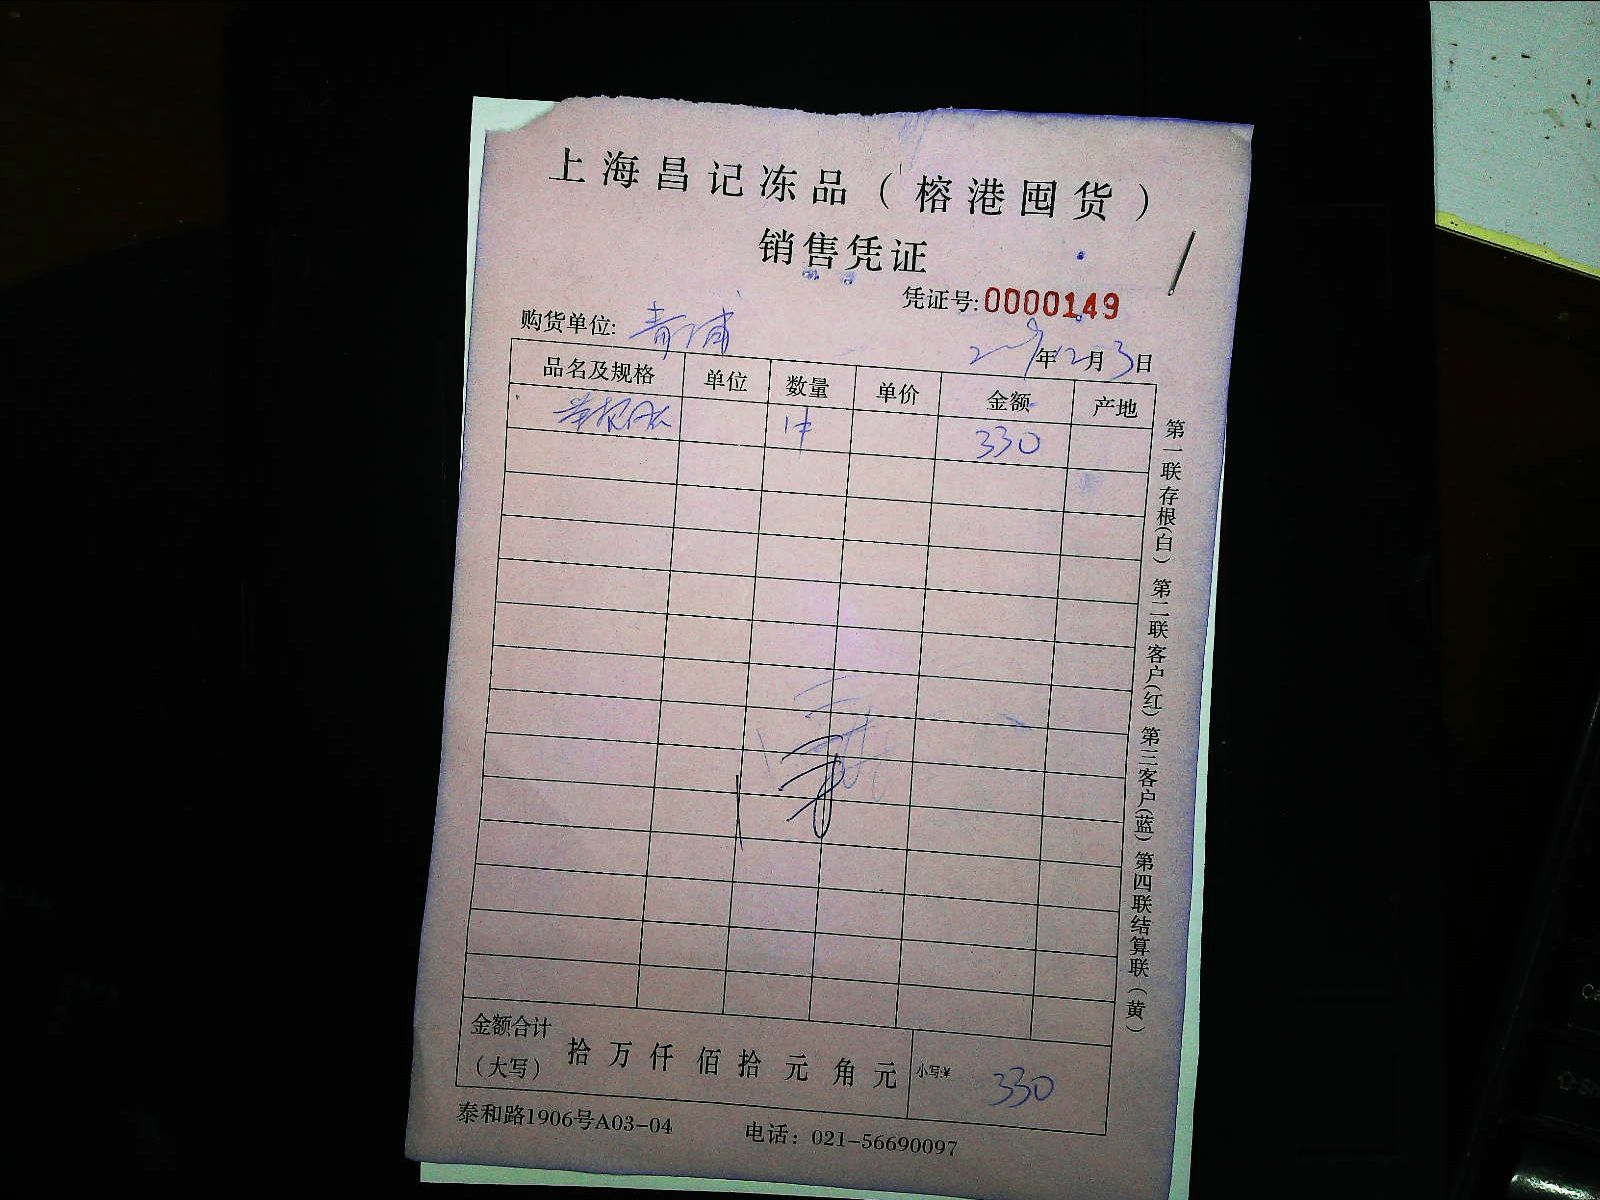 上海昌记冻品（榕港囤货）
销售凭证
凭证号:0000149
购货单位: 青浦
年12月3日
品名及规格 单位 数量 单价 金额 产地
1件 330
金额合计（大写） 拾 万 仟 佰 拾 元 角 元 小写:¥ 330
泰和路1906号A03-04 电话：021-56690097
第一联存根(白) 第二联客户(红) 第三客户(蓝) 第四联结算联(黄)